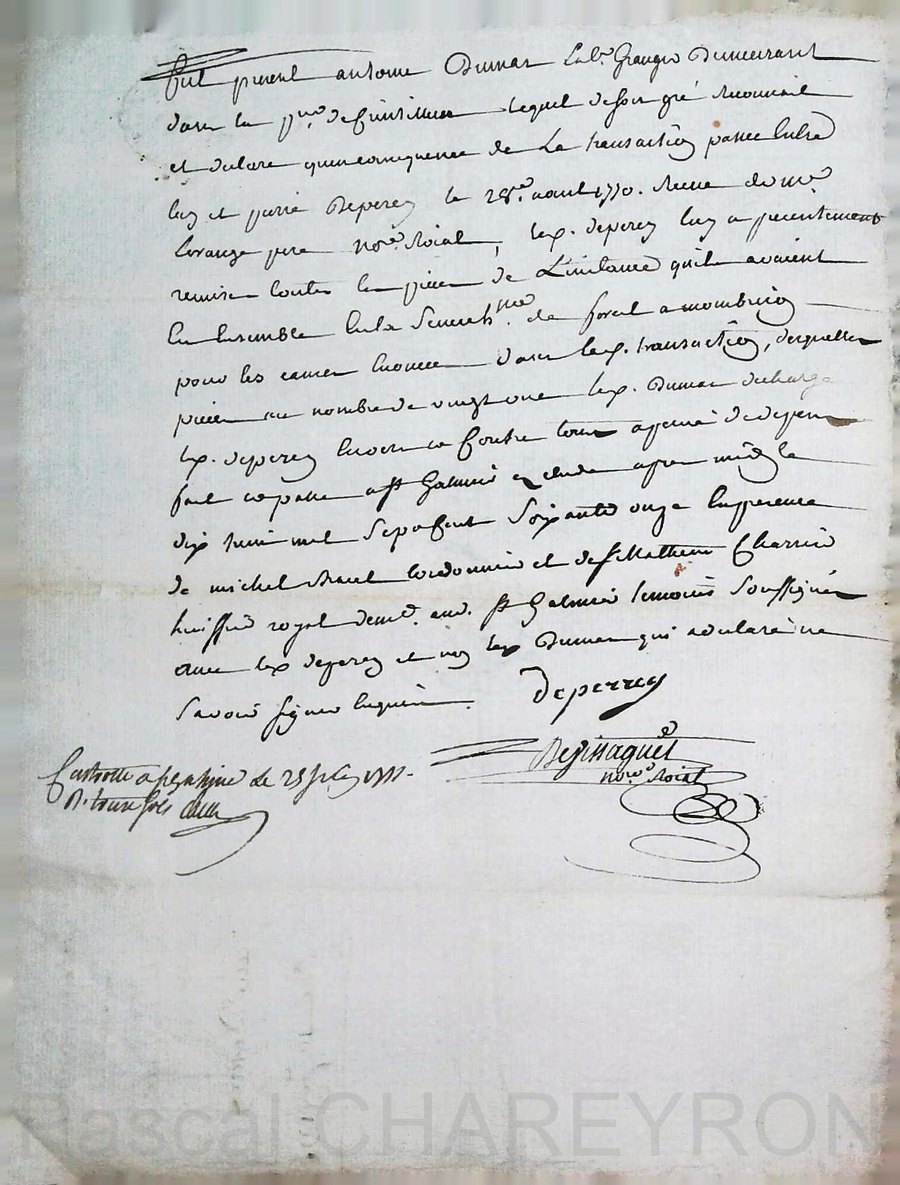 fut present antoine Dumas Lab.r Granger Demeurant
dans la p.sse de lequel de son gré reconnait
et declare qu'en consequence de La transaction passée Entre
luy et pierre Deperrey le 28.e aoust 1770. recue de m.e
Coronge pere no.re Roial, led. deperrey luy a presentement
remises toutes les pieces de L'instance qu'ils avaient
En Ensemble En la Senech.ée de forest a montbrison
pour les causes Enoncées dans lad. transaction, desquelles
pieces au nombre de vingt une led. Dumas decharge
led. deperrey Envers et Contre tous a peine de depens
fait et passé a S.t Galmier Etude apres midy le
dix huit mil Sept Cent Soixante onze En presence
de michel Cordonnier et de S.r Mathieu Charrin
huissier royal dem.t aud. S.t Galmier temoins Soussignés
avec led deperrey et non led Dumas qui a declaré ne
Savoir signer Enquis.
deperrey
no.re Roial
Controllé a S.t galmier Le 25 1771.
R. treize sols
Pascal CHAREYRON